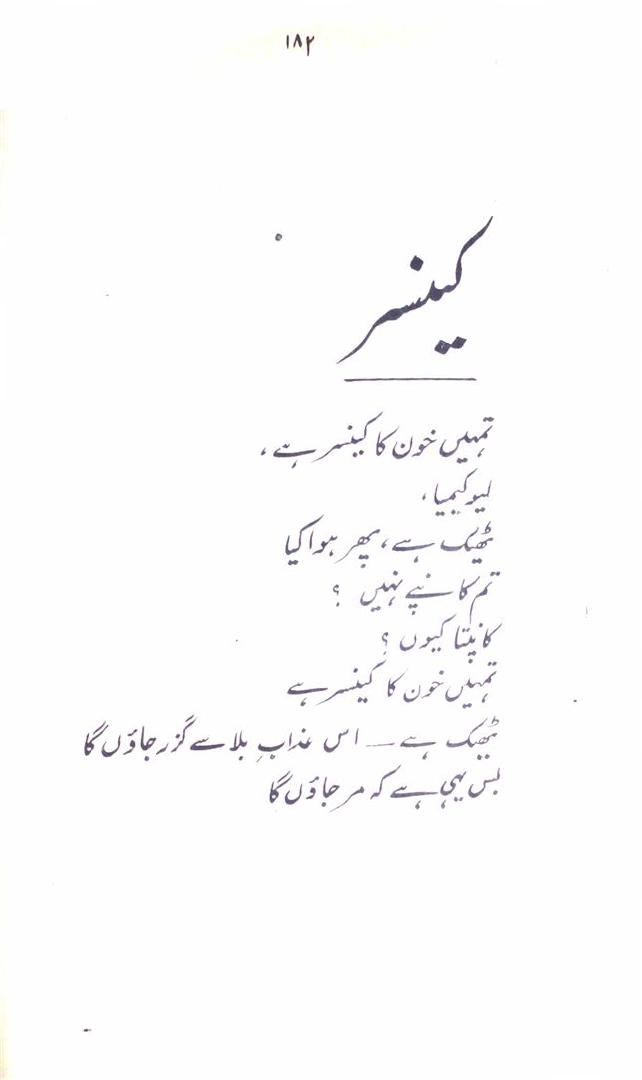 ۱۸۲
کینسر
تمہیں خون کا کینسر ہے،
لیوکیمیا،
ٹھیک ہے، پھر ہوا کیا
تم کانپے نہیں ؟
کانپتا کیوں ؟
تمہیں خون کا کینسر ہے
ٹھیک ہے — اس عذابِ بلا سے گزر جاؤں گا
بس یہی ہے کہ مر جاؤں گا